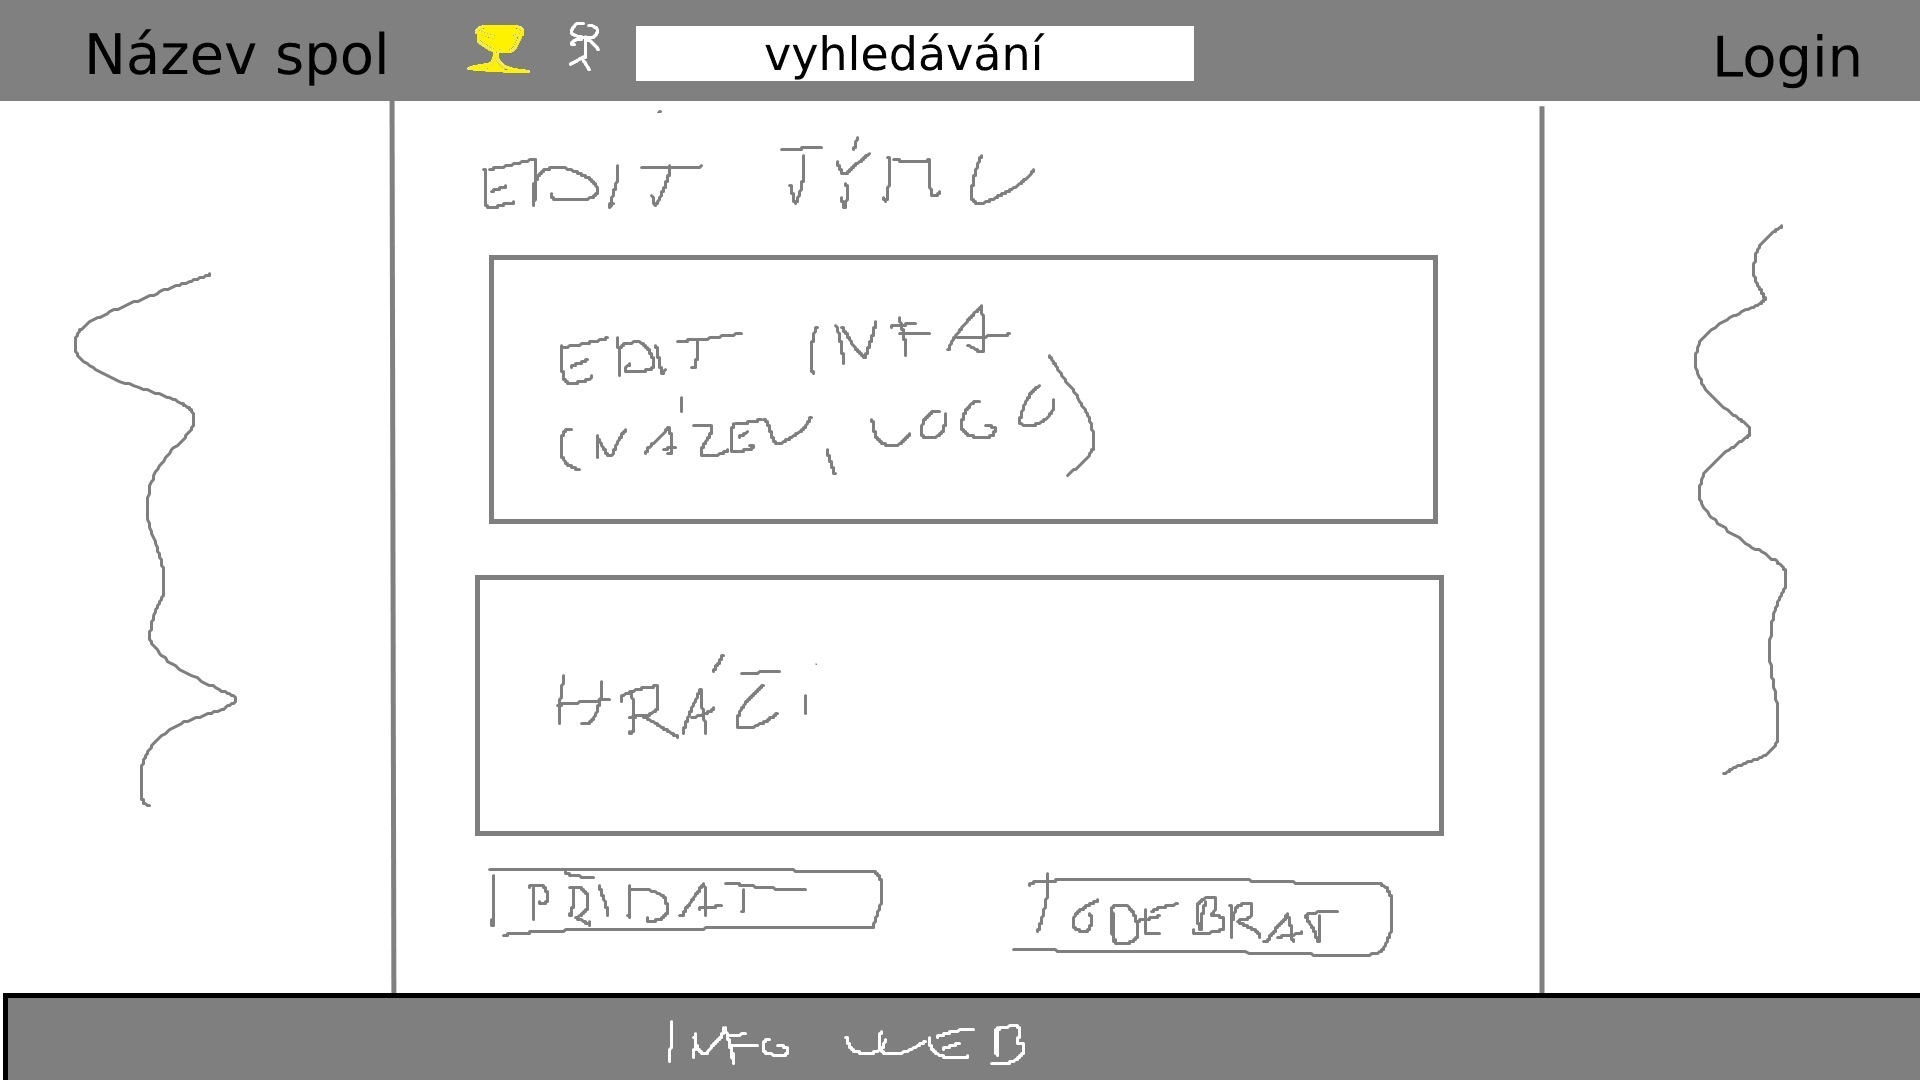 Název spol vyhledávání Login
EDIT TÝMU
EDIT INFA
(NÁZEV, LOGO)
HRÁČI
PŘIDAT ODEBRAT
INFO WEB